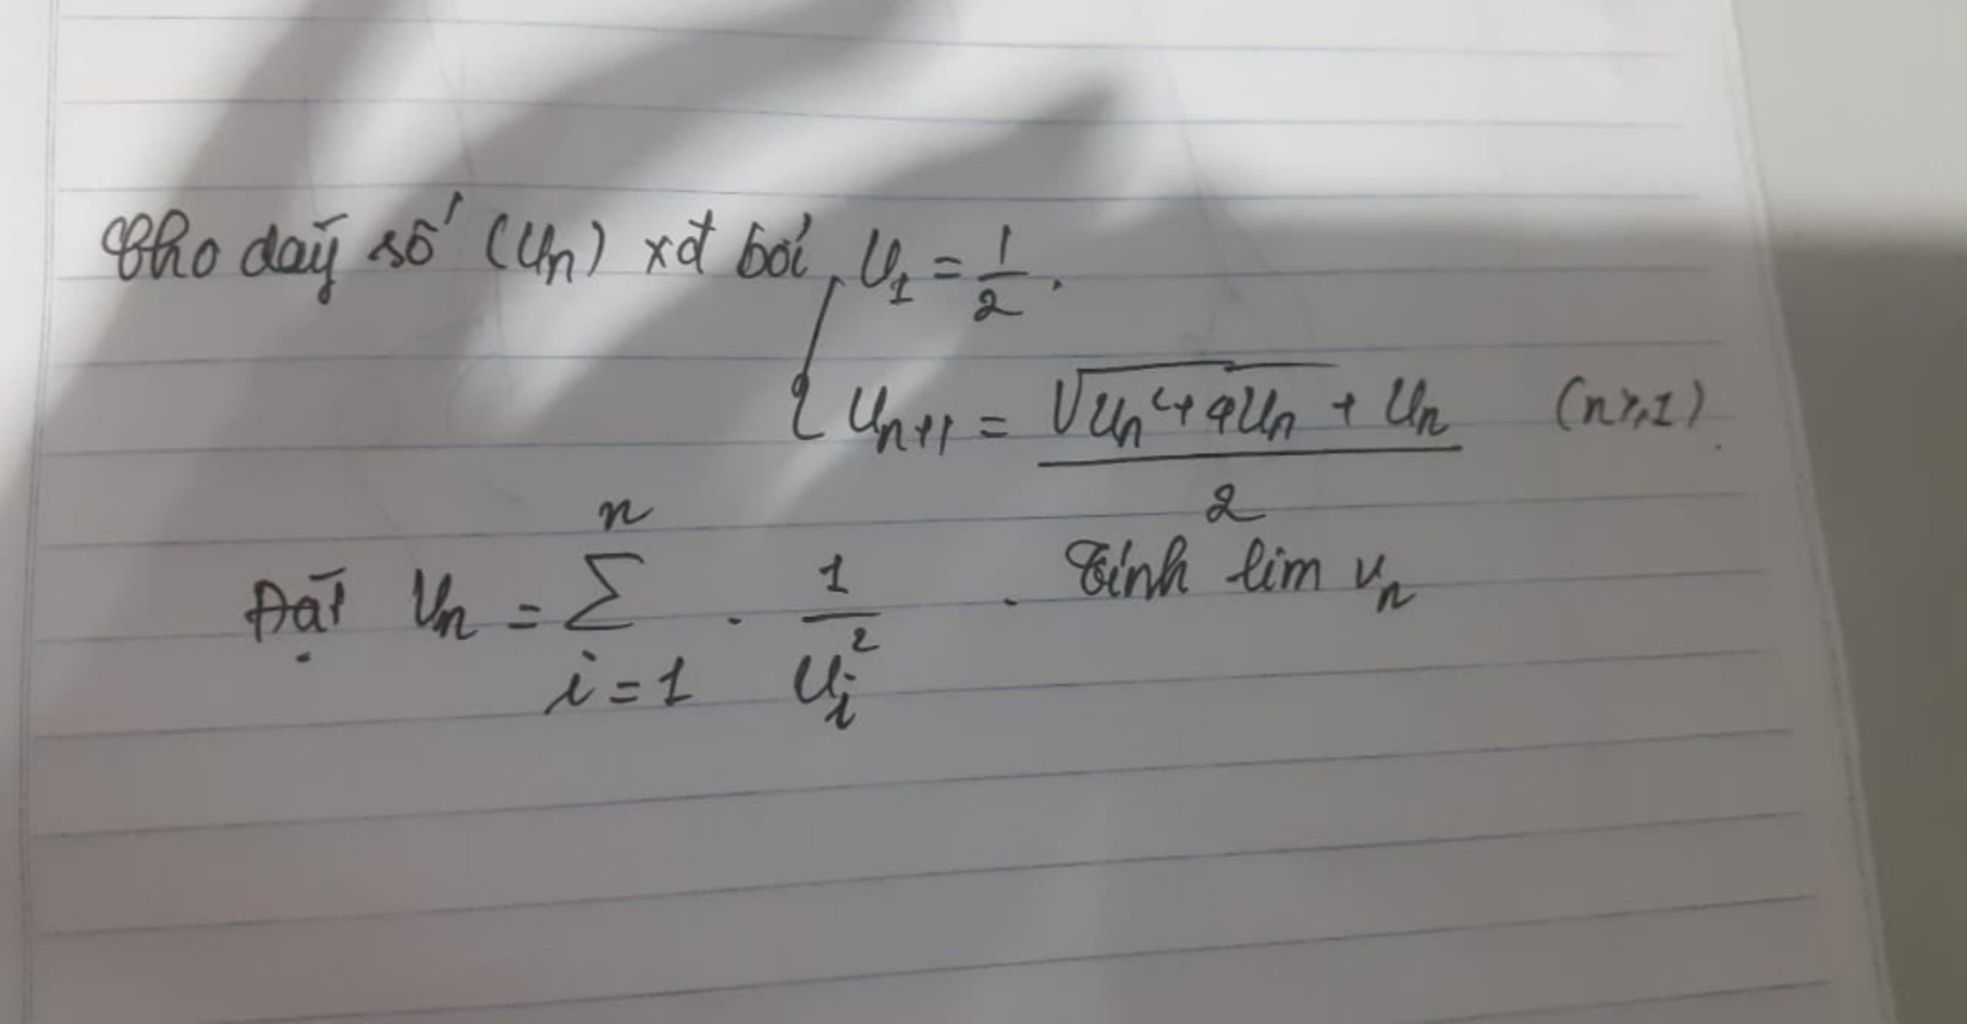 Cho dãy số (Un) xđ bởi U₁ = 1/2.
{ Uₙ₊₁ = (√(Uₙ² + 4Uₙ) + Uₙ)/2 (n ⩾ 1).
Đặt Vₙ = ∑_{i=1}^{n} . 1/Uᵢ² . Tính lim vₙ